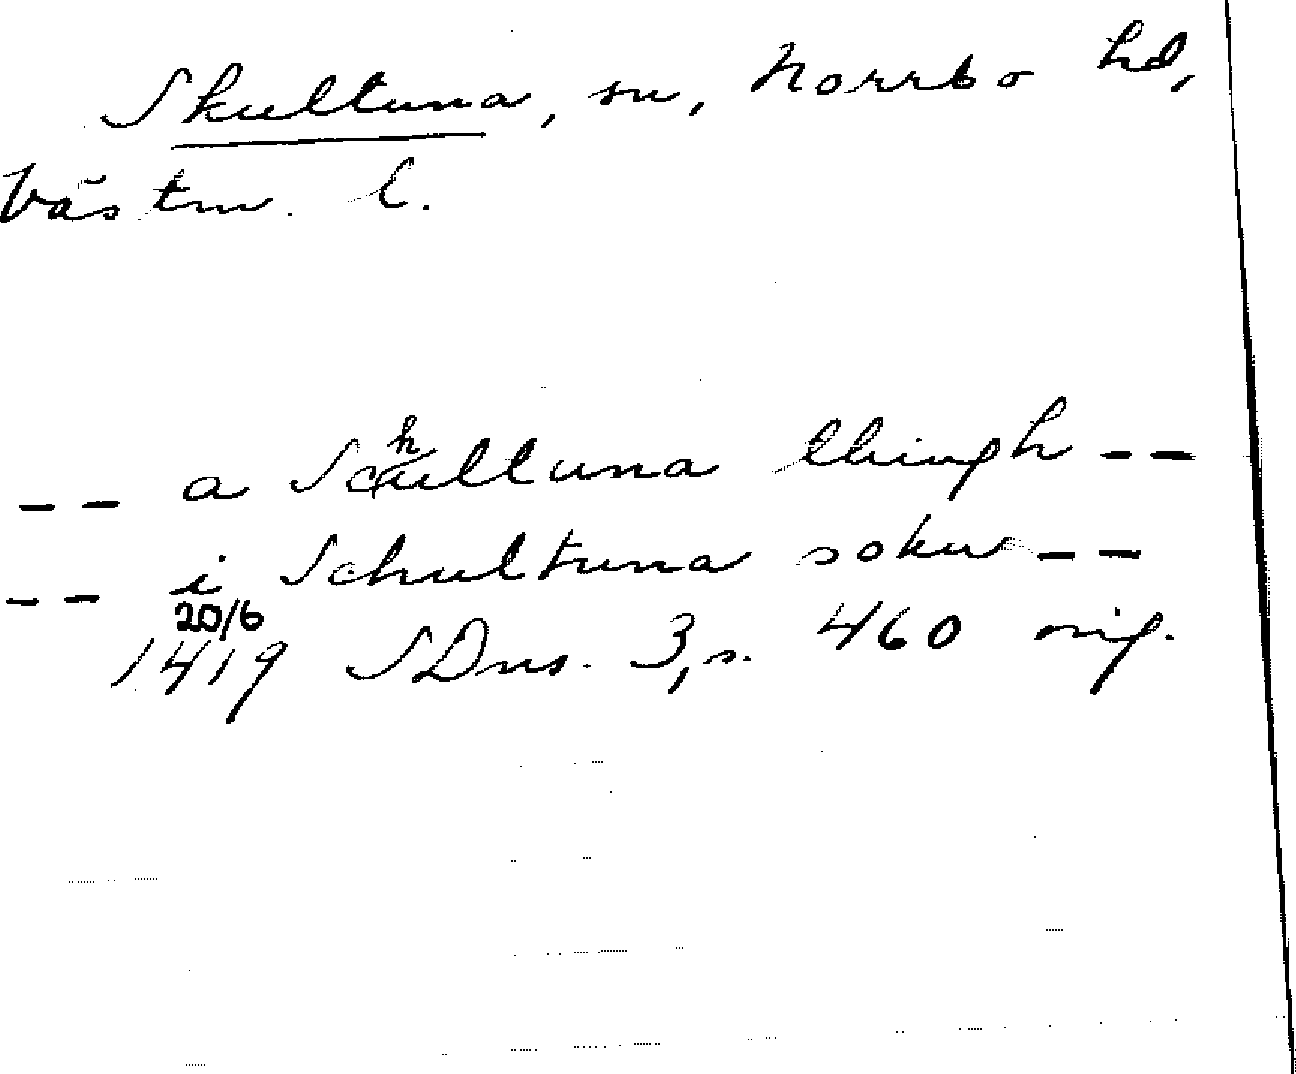 Skultuna, sn, Norrbo hd,
Västm. l.
-- a Schultuna thingh --
-- i Schultuna sokn --
20/6
1419 SDns. 3, s. 460 orig.